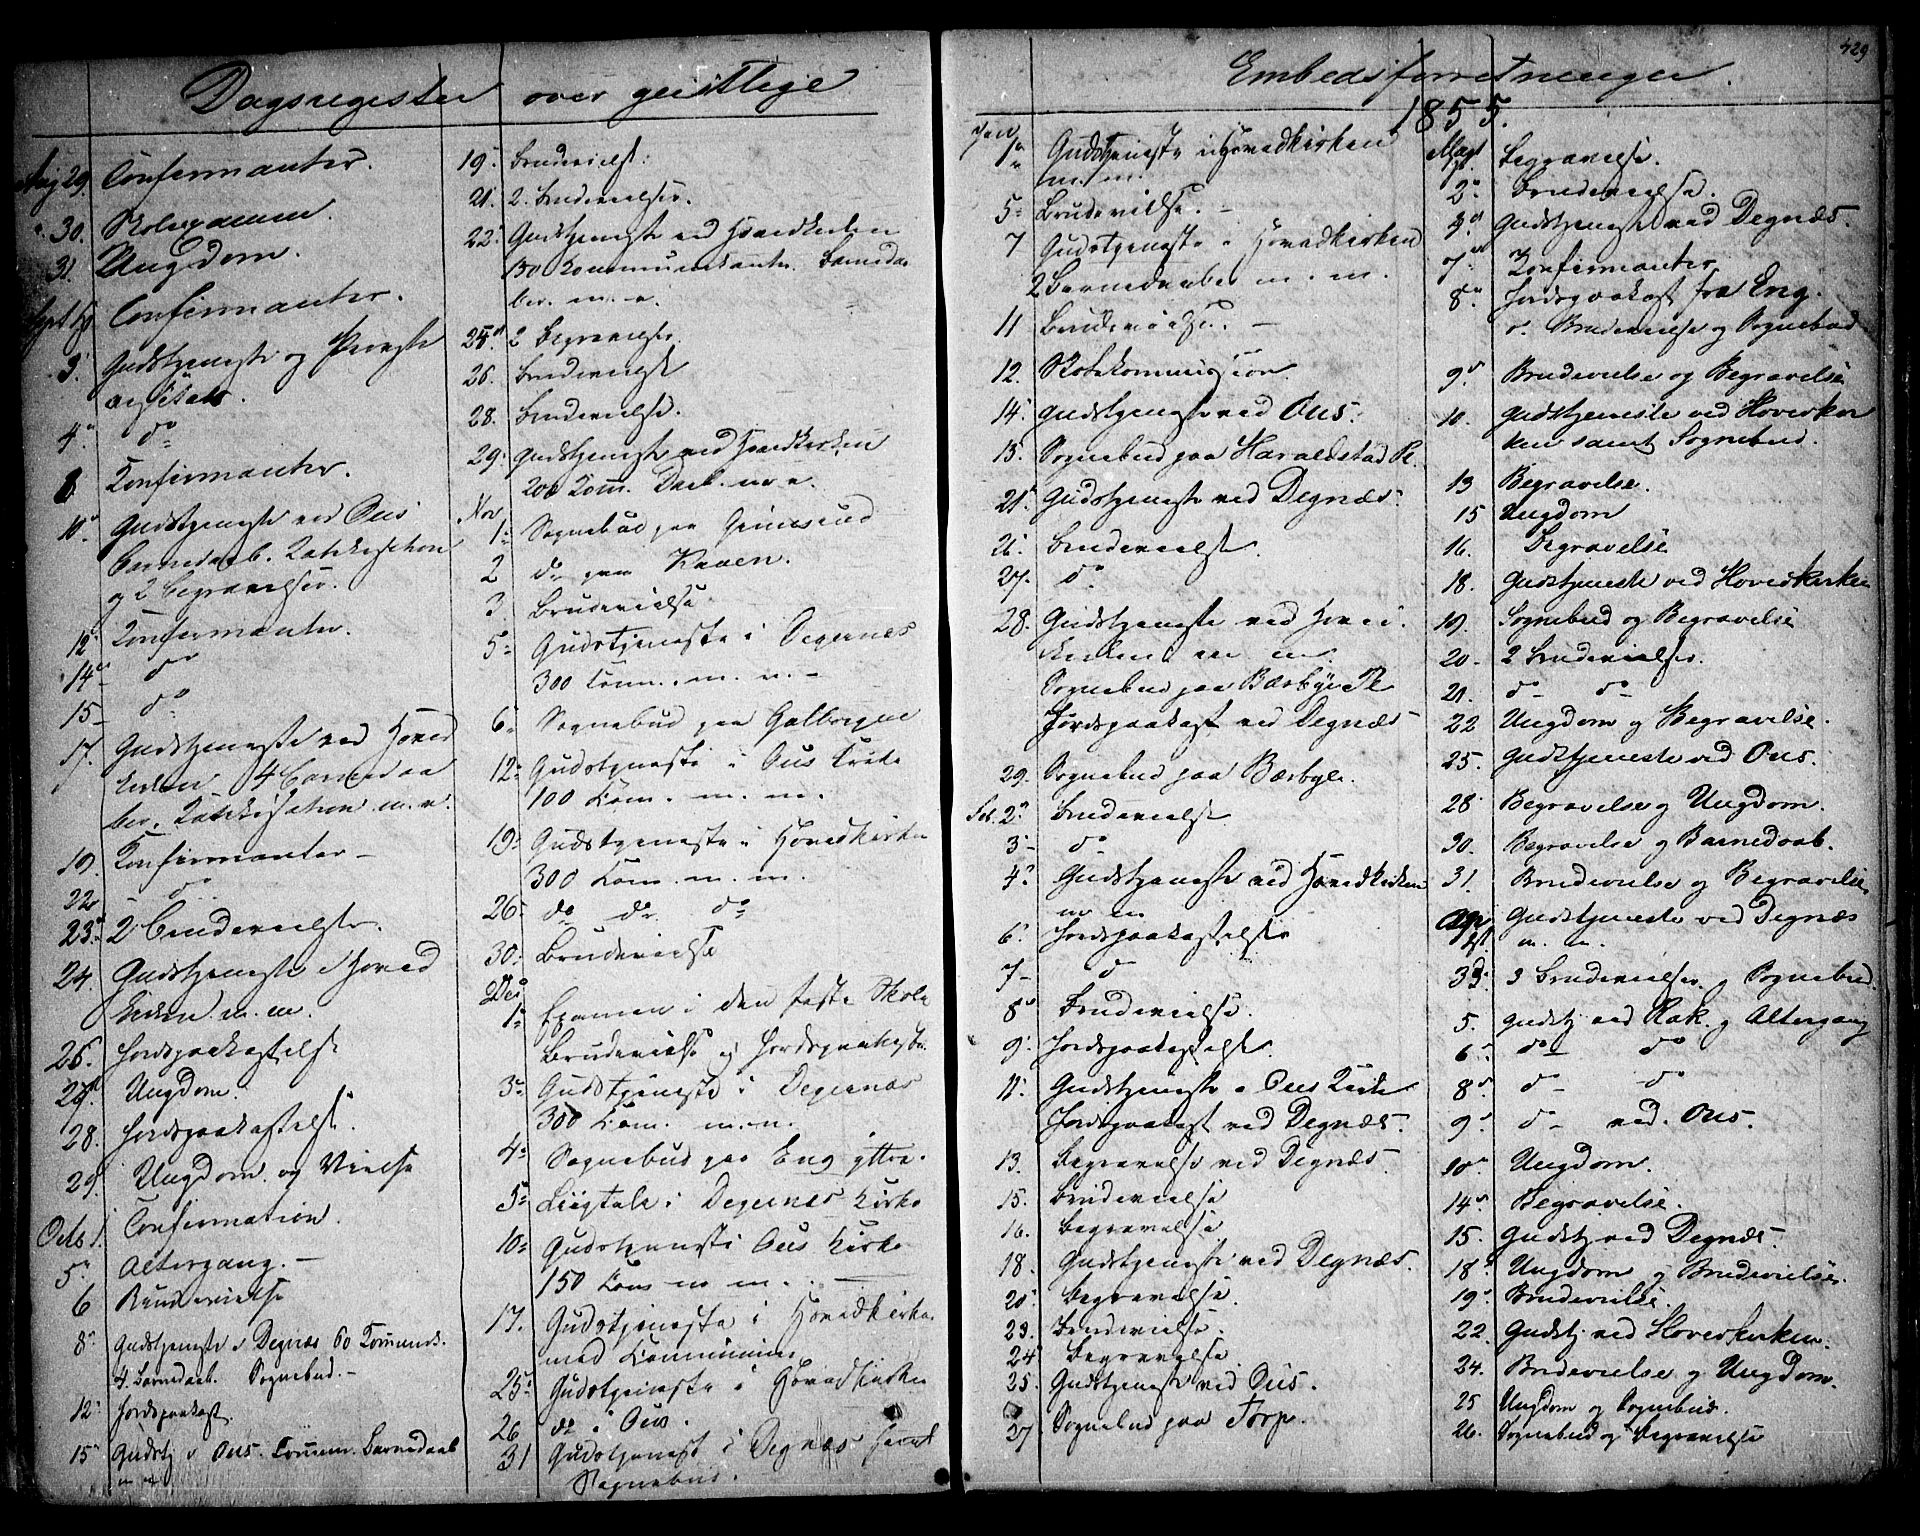 Dagsregister over geistlige
Aug 29. Confirmanter.
" 30. Skoleexamen.
31 Ungdom.
Sept 1ste Confirmanter.
3. Gudstjeneste og Provste
visitats.
4. do
8 Konfirmanter.
10. Gudstjeneste ved Ous
Barnedaab. Katekisation
og 2 Begravelser.
12. Konfirmanter.
14 do
15 do
17. Gudstjeneste ved Hoved
kirken 4 Barnedaa
ber. Katekisation m. v.
19. Konfirmanter
22 do
23. 2 Brudevielser.
24. Gudstjeneste i Hoved
kirken. m. m.
26. Jordspaakastelse
27. Ungdom.
28. Jordspaakastelse.
29. Ungdom. og Vielse
Octb 1. Confirmation.
5. Altergang.
6 Brudevielse
8. Gudstjeneste i Degnæs 60 Commun.
4. Barnedaab. Sognebud.
12. Jordspaakast.
15 Gudstj i Ous. Comm. Barnedaab
m v
19. Brudevielse.
21. 2. Brudevielser.
22. Gudstjeneste ved Hovedkirken
150 Kommunikanter. Barnedaa
ber. m. v.
25. 2 Begravelser.
26. Brudevielse
28. Brudevielse.
29. Gudstjeneste ved Hovedkirken
200 Kom. Daab. m v.
Nov
1. Sognebud paa Grimsrud
2 do paa Raaen.
3 Brudevielse.
5. Gudstjeneste i Degernes
300 Com. m. v.
6. Sognebud paa
12. Gudstjeneste i Ous Kirke
100 Kom. m. m.
19. Gudstjeneste i Hovedkirke
300 Kom. m. m.
26. do do do
30. Brudevielse
Des
1. Examen i den faste Skole
Brudevielse og Jordspaakaste.
3. Gudstjeneste i Degernæs
300 Com. m. m.
4. Sognebud paa Eng yttre.
5. Liigtale i Degernæs Kirke
10. Gudstjeneste i Ous Kirke
150 Com m m.
17. Gudstjeneste i Hovedkirke.
med Kommunion.
25. Gudstjeneste i Hovedkirke
26 do i Ous.
31 Gudstjenest i Degnæs samt
Sognebud.
Embedsforretninger.
429
1855.
Jan
1. Gudstjeneste i Hovedkirken
m. m.
5. Brudevielse.
7 Gudstjeneste i Hovedkirken
2 Barnedaaber m. m.
11 Brudevielse.
12. Skolekommission.
14. Gudstjeneste ved Ous.
15. Sognebud paa Haraldstad Pl.
21. Gudstjeneste ved Degnæs.
26. Brudevielse.
27. do
28. Gudstjeneste ved Hoved
kirken m m.
Sognebud paa Bærbye Pl
Jordspaakast ved Degnæs
29. Sognebud paa Bærbye.
Feb. 2. Brudevielse
3 do
4. Gudstjeneste ved Hovedkirken
m m
6. Jordspaakastelse
7 do
8 Brudevielse.
9. Jordspaakastelse.
11. Gudstjeneste i Ous Kirke
Jordspaakast ved Degnæs.
13. Begravelse ved Degnæs.
15. Brudevielse
16. Begravelse
18. Gudstjeneste ved Degnæs.
20. Begravelse.
23. Brudevielse.
24 Begravelse.
25. Gudstjeneste ved Ous.
27 Sognebud paa Torp.
Mart
1st. Begravelse.
2. Brudevielse.
4. Gudstjeneste ved Degnæs.
7. Konfirmanter
8. Jordspaakast fra Eng.
o. Brudevielse og Sognebud
9. Brudevielse og Begravelse
10. Gudstjeneste ved Hovedkir
ken samt Sognebud.
13 Begravelse.
15 Ungdom
16. Begravelse
18. Gudstjeneste ved Hovedkirken
19. Sognebud og Begravelse
20. 2 Brudevielser.
21. do do
22 Ungdom og Begravelse.
25. Gudstjeneste ved Ous.
28 Begravelse og Ungdom.
30. Begravelse og Barnedaab.
31. Brudevielse og Begravelse
Apr
1st. Gudstjeneste ved Degnæs
m. m.
3. 3 Brudevielser og Sognebud.
5. Gudstj ved Rak. og Altergang
6 do do
8 do do
9 do ved. Ous.
10. Ungdom.
14. Begravelse.
15. Gudstj ved Degnæs.
18 Ungdom og Brudevielse.
19 Brudevielse.
22. Gudstj ved Hovedkirken.
24. Brudevielse og Ungdom.
25 Ungdom og Sognebud.
26. Sognebud og Begravelse